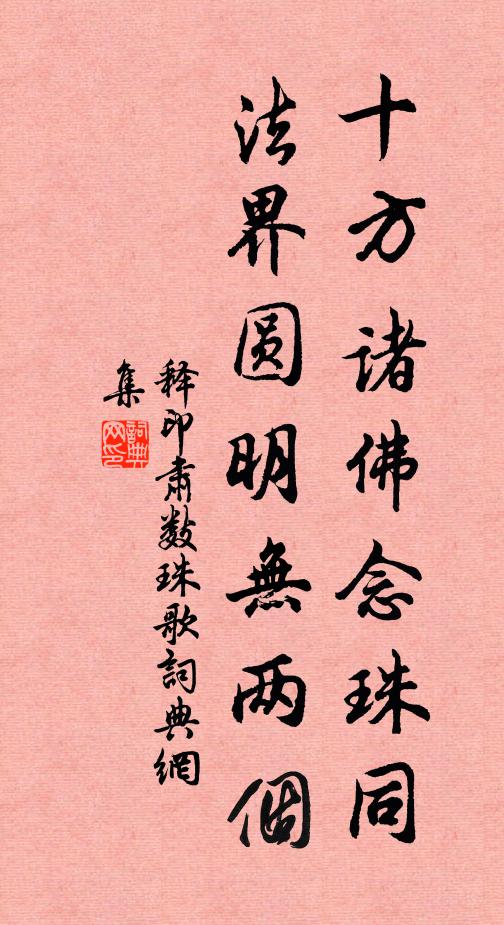 十方诸佛念珠同
法界圆明無两個
释印肃数珠歌詞典網
集
詞典网印